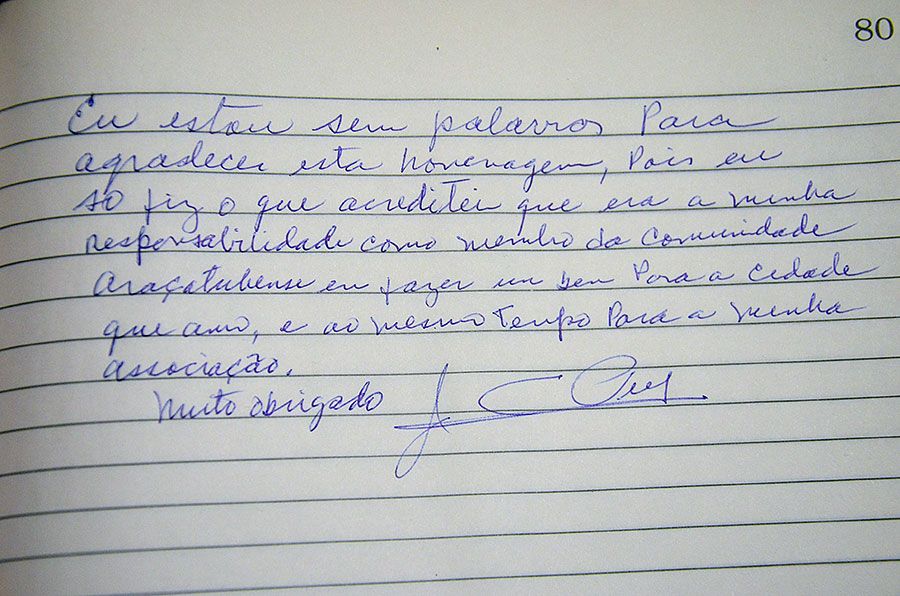 80
Eu estou sem palavras Para
agradecer esta homenagem, Pois eu
só fiz o que acreditei que era a minha
responsabilidade como membro da Comunidade
Araçatubense eu fazer um bem Para a Cidade
que amo, e ao mesmo Tempo Para a minha
associação.
Muito obrigado